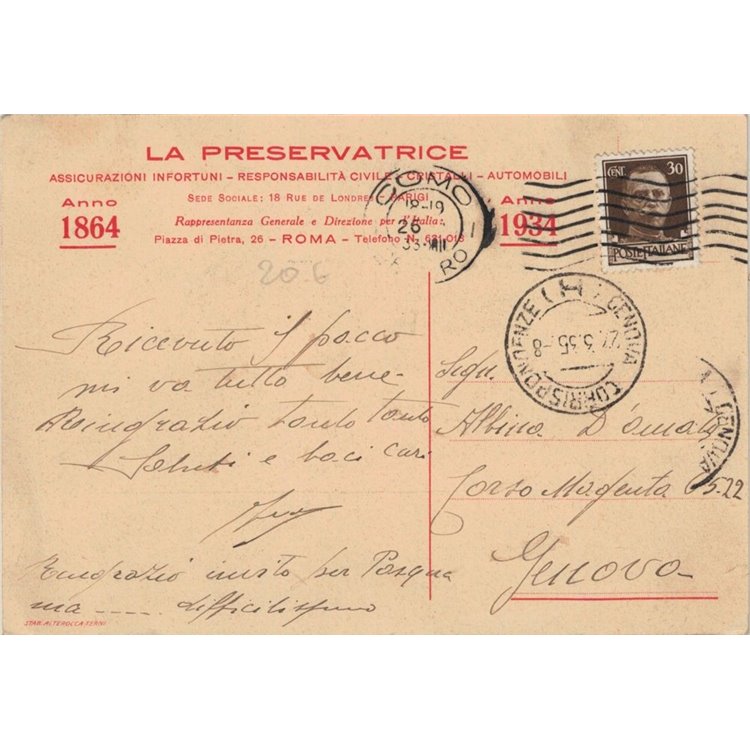 LA PRESERVATRICE
ASSICURAZIONI INFORTUNI – RESPONSABILITÀ CIVILE – CRISTALLI – AUTOMOBILI
Anno 1864
SEDE SOCIALE: 18 RUE DE LONDRES PARIGI
Rappresentanza Generale e Direzione per l'Italia:
Piazza di Pietra, 26 – ROMA – Telefono N. 631.018
Anno 1934
COMO
18-19
26
CENT.
30
POSTE ITALIANE
206
CORRISPONDENZE
GENOVA
27.3.35.-8
GENOVA
Ricevuto 1 pacco
mi va tutto bene
Ringrazio tanto tanto
Saluti e baci cari
Ringrazio invito per Pasqua
ma ..... difficilissimo
Sign.
Albina D'Amato
Corso Magenta 5.22
Genova
STAB. ALTEROCCA-TERNI